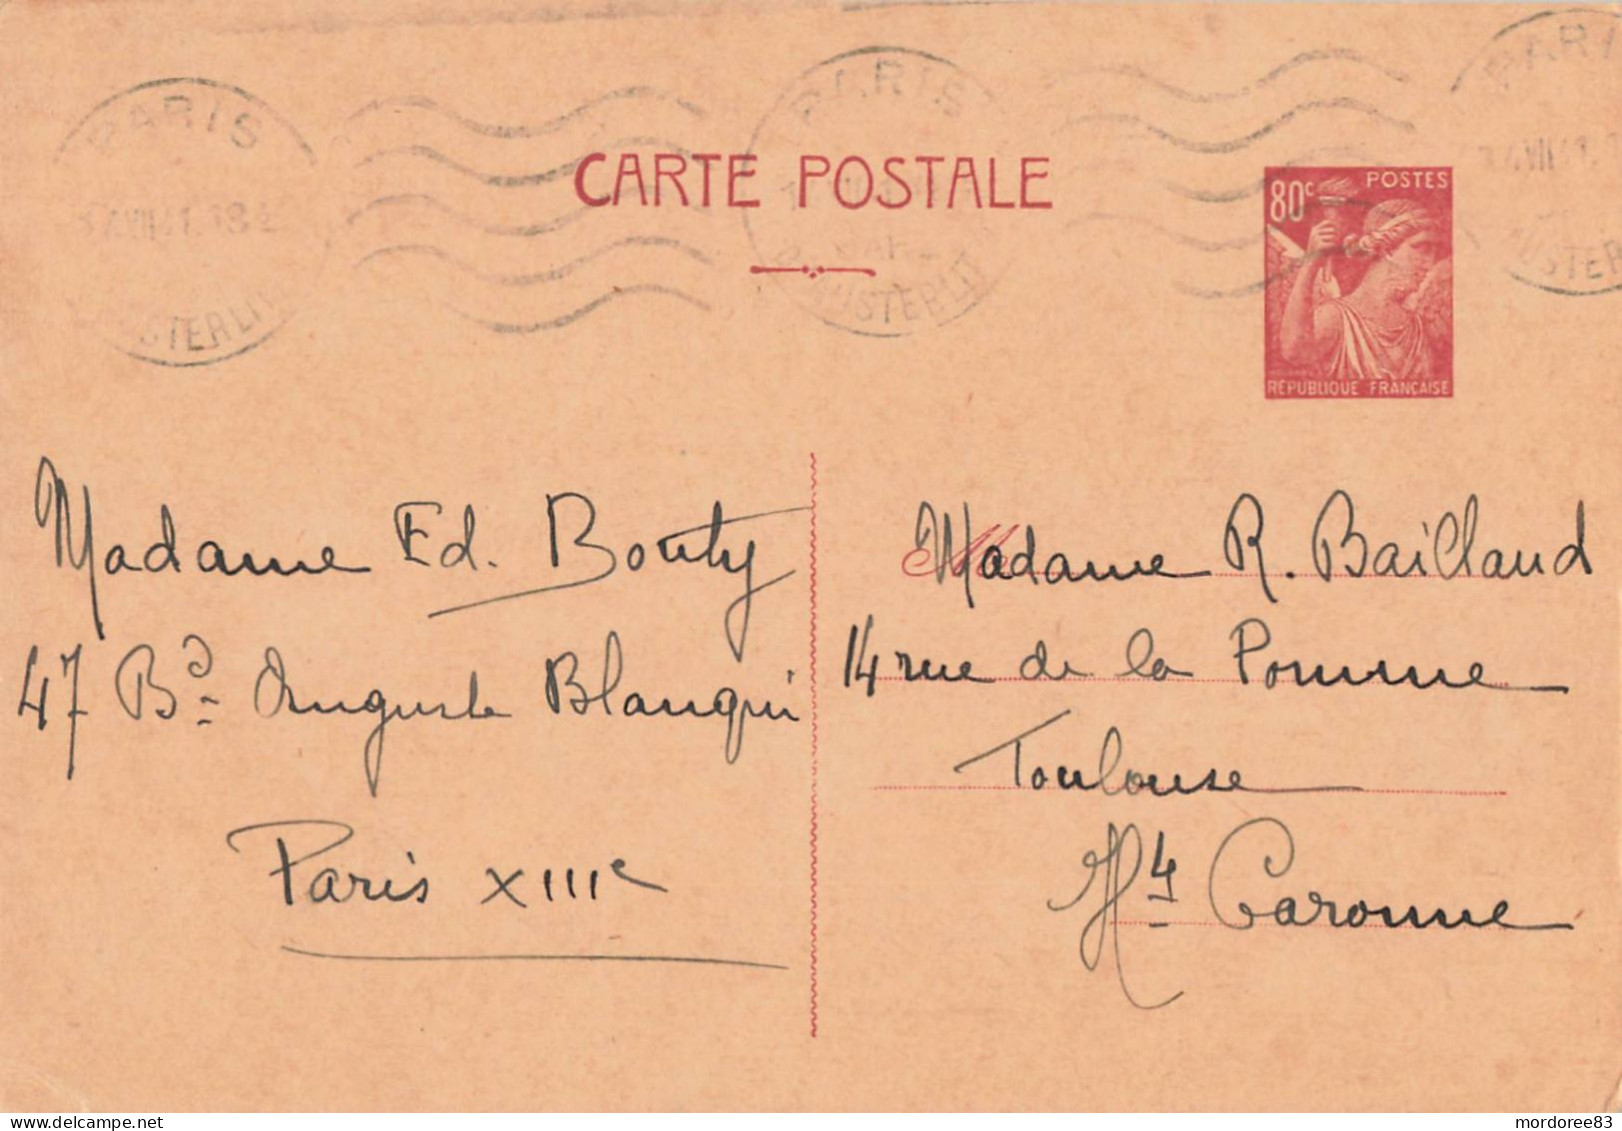 PARIS
AUSTERLITZ
PARIS
GARE
AUSTERLIT
PARI
AUSTER
CARTE POSTALE
80c POSTES
RÉPUBLIQUE FRANÇAISE
Madame Ed. Bouty
47 Bd Auguste Blanqui
Paris XIIIe
Madame R. Baillaud
14 rue de la Pomme
Toulouse
Hte Garonne
mordoree83